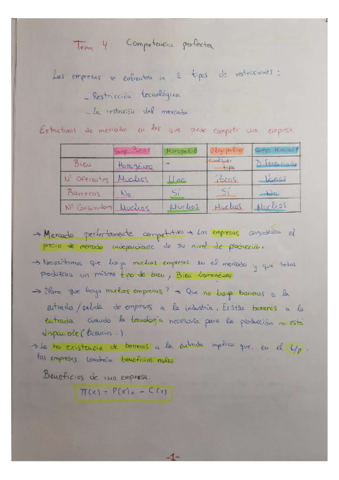 Tema 4 Competencia perfecta
Las empresas se enfrentan a 2 tipos de restricciones:
- Restricción tecnológica
- La restricción del mercado
Estructuras de mercado en las que puede competir una empresa
Comp. Perf. Monopolio Oligopolio Comp. Monopol.
Bien Homogéneo - cualquier tipo Diferenciado
Nº Oferentes Muchos Uno Pocos Varios
Barreras No Sí Sí No
Nº Consumidores Muchos Muchos Muchos Muchos
→ Mercado perfectamente competitivo → Las empresas consideran el
precio de mercado independiente de su nivel de producción.
→ Necesitamos que haya muchas empresas en el mercado y que todas
produzcan un mismo tipo de bien, Bien homogéneo
→ ¿Para que haya muchas empresas? → Que no haya barreras a la
entrada/salida de empresas a la industria. Existen barreras a la
entrada cuando la tecnología necesaria para la producción no está
disponible
→ La no existencia de barreras a la entrada implica que, en el L/p
las empresas tendrán beneficios nulos.
Beneficios de una empresa:
Π(x) = P(x)x - C(x)
-1-